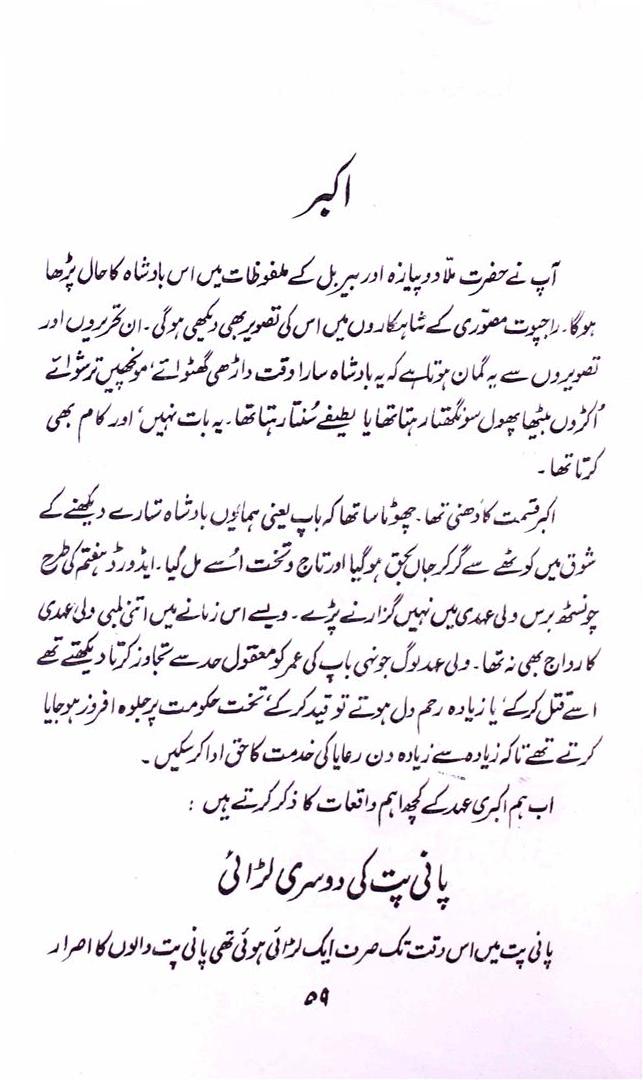 اکبر
آپ نے حضرت ملّا دو پیازہ اور بیربل کے ملفوظات میں اس بادشاہ کا حال پڑھا
ہوگا۔ راجپوت مصوّری کے شاہکاروں میں اس کی تصویر بھی دیکھی ہوگی۔ ان تحریروں اور
تصویروں سے یہ گمان ہوتا ہے کہ یہ بادشاہ سارا وقت داڑھی گھٹوائے، مونچھیں ترشوائے
اُکڑوں بیٹھا پھول سونگھتا رہتا تھا یا لطیفے سُنتا رہتا تھا۔ یہ بات نہیں، اور کام بھی
کرتا تھا۔
اکبر قسمت کا دَھنی تھا۔ چھوٹا سا تھا کہ باپ یعنی ہمایوں بادشاہ ستارے دیکھنے کے
شوق میں کوٹھے سے گر کر جاں بحق ہوگیا اور تاج و تخت اُسے مل گیا۔ ایڈورڈ ہفتم کی طرح
چونسٹھ برس ولی عہدی میں نہیں گزارنے پڑے۔ ویسے اس زمانے میں اتنی لمبی ولی عہدی
کا رواج بھی نہ تھا۔ ولی عہد لوگ جونہی باپ کی عمر کو معقول حد سے تجاوز کرتا دیکھتے تھے
اسے قتل کرکے، یا زیادہ رحم دل ہوتے تو قید کرکے، تخت حکومت پر جلوہ افروز ہو جایا
کرتے تھے تاکہ زیادہ سے زیادہ دن رعایا کی خدمت کا حق ادا کر سکیں۔
اب ہم اکبری عہد کے کچھ اہم واقعات کا ذکر کرتے ہیں :
پانی پت کی دوسری لڑائی
پانی پت میں اس وقت تک صرف ایک لڑائی ہوئی تھی پانی پت والوں کا اصرار
۵۹